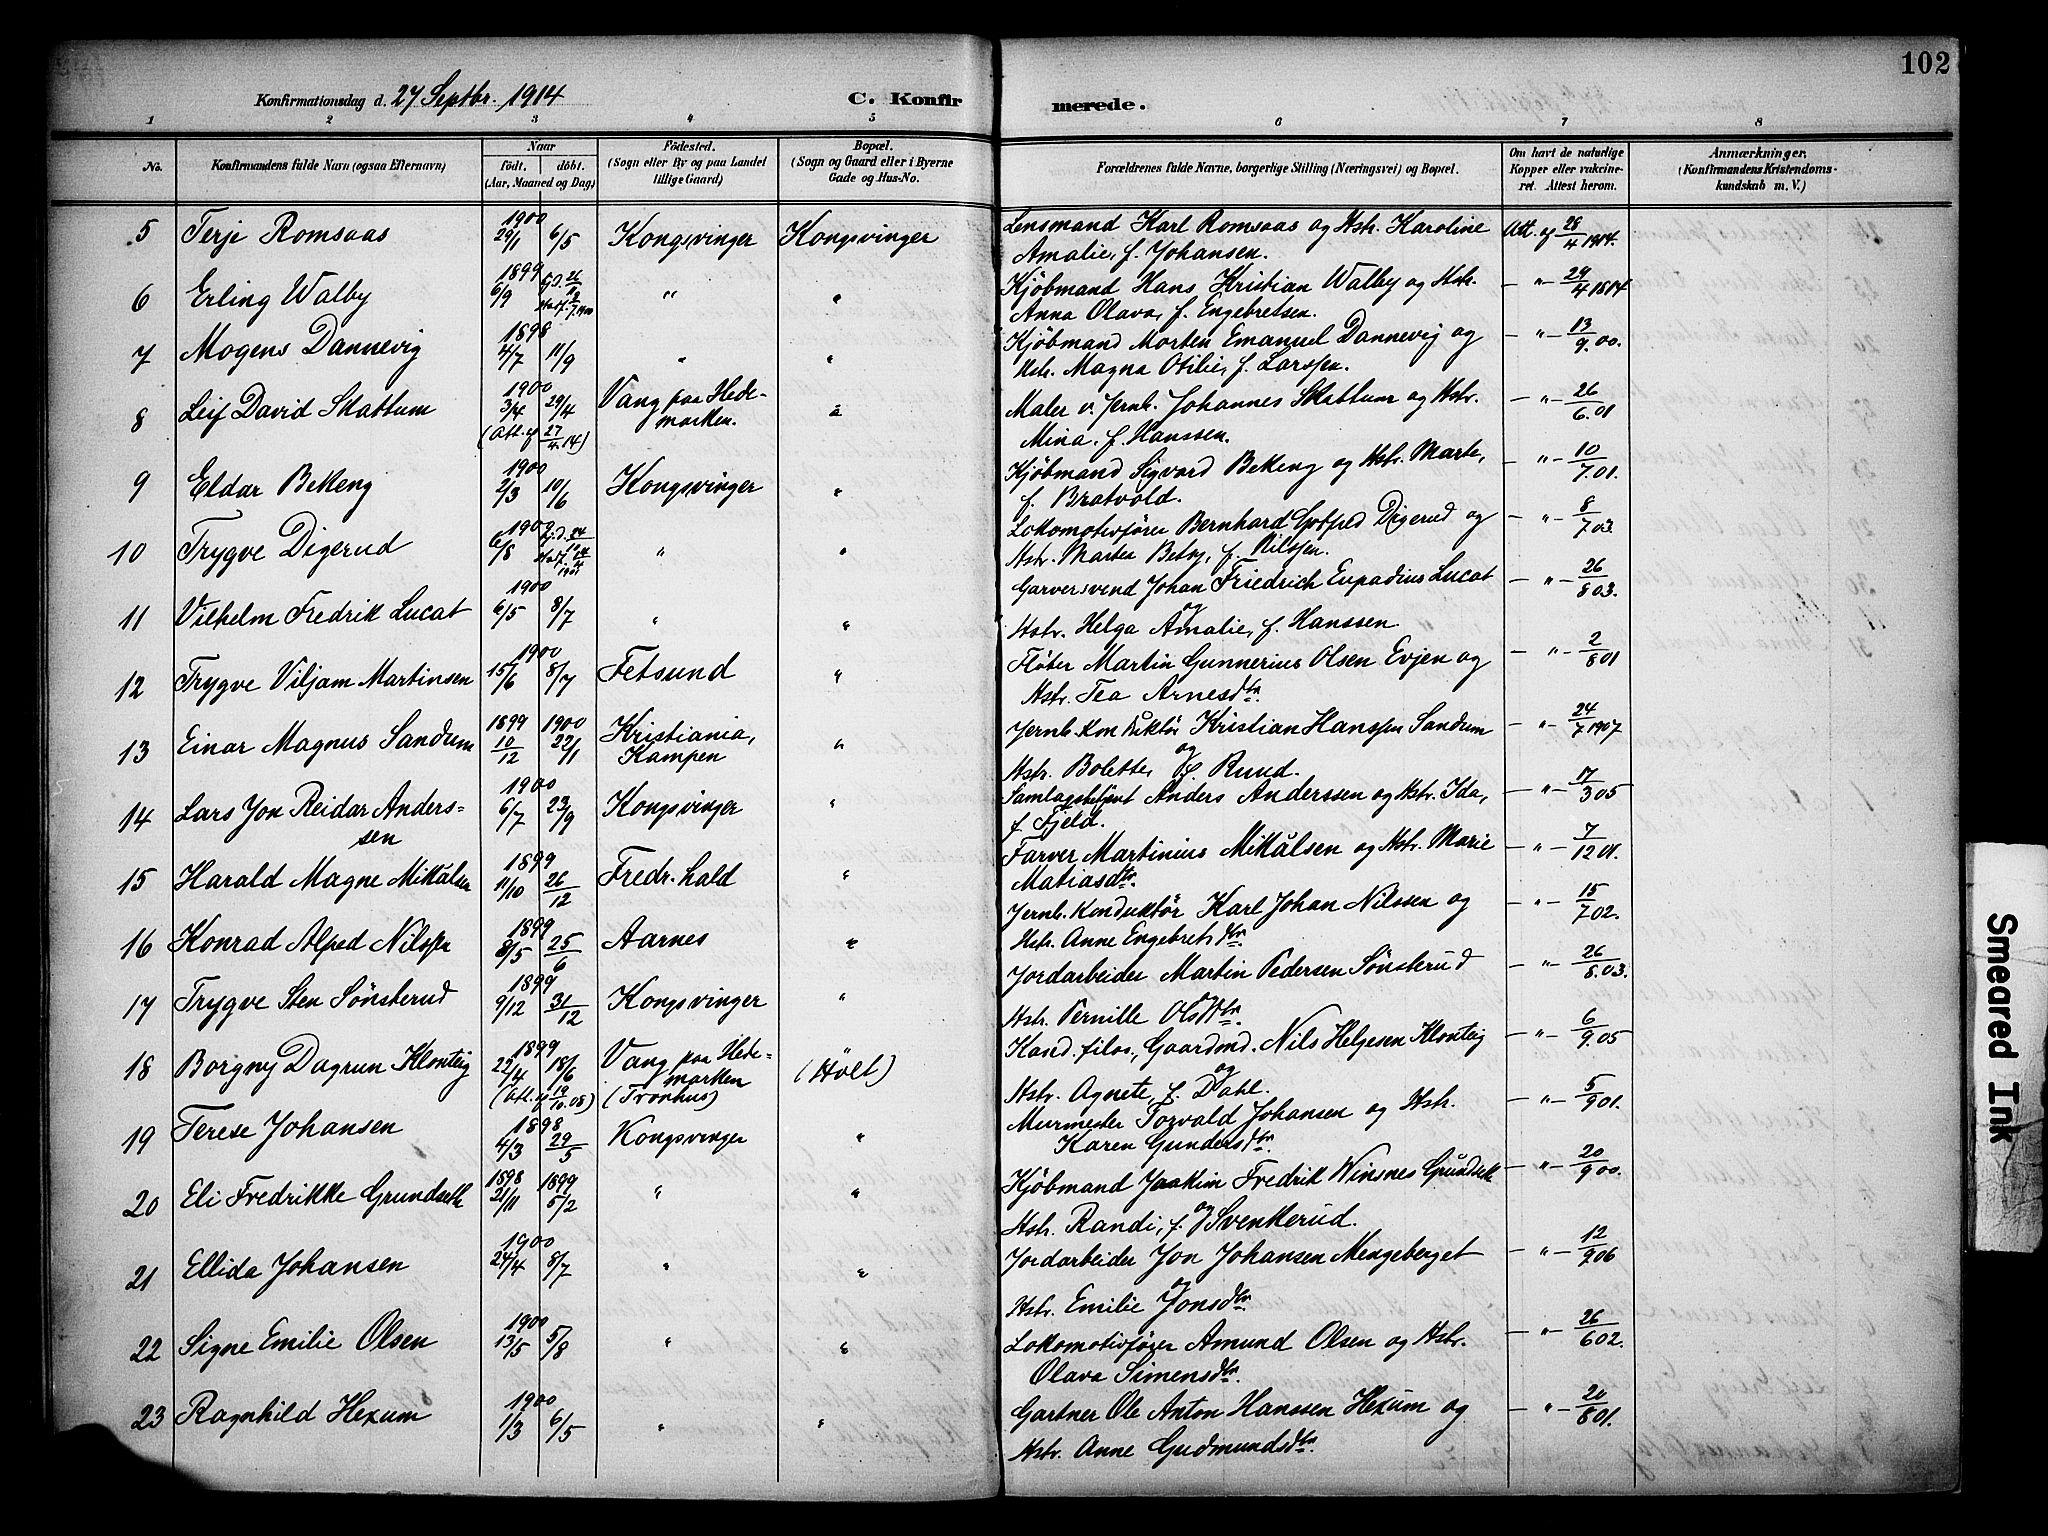 102
Konfirmationsdag d. 27 Septbr. 1914
C. Konfirmerede.
1 2 3 4 5 6 7 8
No. Konfirmandens fulde Navn (ogsaa Efternavn) Naar født, døbt. (Aar, Maaned og Dag) Fødested. (Sogn eller By og paa Landet tillige Gaard) Bopæl. (Sogn og Gaard eller i Byerne Gade og Hus-No. Forældrenes fulde Navne, borgerlige Stilling (Næringsvei) og Bopæl. Om havt de naturlige Kopper eller vakcineret. Attest herom. Anmærkninger. (Konfirmandens Kristendomskundskab m. V.)
5 Terje Romsaas 1900 29/1 6/5 Kongsvinger Kongsvinger Lensmand Karl Romsaas og Hstr. Karoline Att. af 28/4 1914.
Amalie, f. Johansen.
6 Erling Walby 1899 6/9 " " Kjöbmand Hans Kristian Walby og Hstr. — " — 29/4 1914
Anna Olava, f. Engebretsen.
7 Mogens Dannevig 1898 4/7 11/9 " " Kjöbmand Morten Emanuel Dannevig og — " — 13/9.00.
Hstr. Magna Otilie, f. Larssen.
8 Leif David Skattum 1900 3/4 29/4 (Att. af 27/4.14) Vang paa Hedemarken. " Maler v. Jernb. Johannes Skattum og Hstr. — " — 26/6.01
Mina, f. Hanssen.
9 Eldar Bekeng 1900 2/3 10/6 Kongsvinger " Kjöbmand Sigvard Bekeng og Hstr. Marte, — " — 10/7.01.
f. Bratvold.
10 Trygve Digerud 1900 6/8 " " Lokomotivfører Bernhard Gotfred Digerud og — " — 8/7.03.
Hstr. Martea Betsy, f. Nilssen.
11 Vilhelm Fredrik Lucat 1900 6/5 8/7 " " Garversvend Johan Friedrich Lucat og — " — 26/8 03.
Hstr. Helga Amalie, f. Hanssen
12 Trygve Viljam Martinsen 1900 15/6 8/7 Fetsund " Fløter Martin Gunnerius Olsen Evjen og — " — 2/8 01
Hstr. Tea Arnesdtr.
13 Einar Magnus Sandum 1899 10/12 1900 22/1 Kristiania, Kampen " Jernb. Konduktör Kristian Hanssen Sandum og — " — 24/7 1907
Hstr. Bolette, f. Ruud.
14 Lars Jon Reidar Anderssen 1900 6/7 23/9 Kongsvinger " Samlagsbetjent Anders Anderssen og Hstr. Ida, — " — 17/3 05
f. Fjeld.
15 Harald Magne Mikalsen 1899 11/10 26/12 Fredr.hald " Farver Martinius Mikalsen og Hstr. Marie — " — 7/12 01.
Matiasdtr.
16 Konrad Alfred Nilssen 1899 8/5 25/6 Aarnes " Jernb. Konduktör Karl Johan Nilssen og — " — 15/7 02.
Hstr. Anne Engebretsdtr.
17 Trygve Sten Sønsterud 1899 9/12 31/12 Kongsvinger " Jordarbeider Martin Pedersen Sønsterud og — " — 26/8.03.
Hstr. Pernille Olsdtr.
18 Borgny Dagrun Klonteig 1899 22/4 18/6 (Att. af 19/10.08) Vang paa Hedemarken (Tronhus) (Holt) Kand. filos., Gaardmd. Nils Helgesen Klonteig og — " — 6/9.05
Hstr. Agnete, f. Dahl.
19 Terese Johansen 1898 4/3 29/5 Kongsvinger " Murmester Torvald Johansen og Hstr. — " — 5/9 01.
Karen Gundersdtr.
20 Eli Fredrikke Grundseth 1898 21/11 1899 5/2 " " Kjöbmand Joakim Fredrik Winsnes Grundseth og — " — 20/9 00.
Hstr. Randi, f. Svenkerud.
21 Ellida Johansen 1900 24/4 8/7 " " Jordarbeider Jon Johansen Mengeberget og — " — 12/9 06
Hstr. Emilie Jonsdtr.
22 Signe Emilie Olsen 1900 13/5 5/8 " " Lokomotivfører Amund Olsen og Hstr. — " — 26/6 02.
Olava Simensdtr.
23 Ragnhild Hexum 1900 1/3 6/5 " " Gartner Ole Anton Hanssen Hexum og — " — 20/8 01.
Hstr. Anne Gudmundsdtr.
Smeared Ink